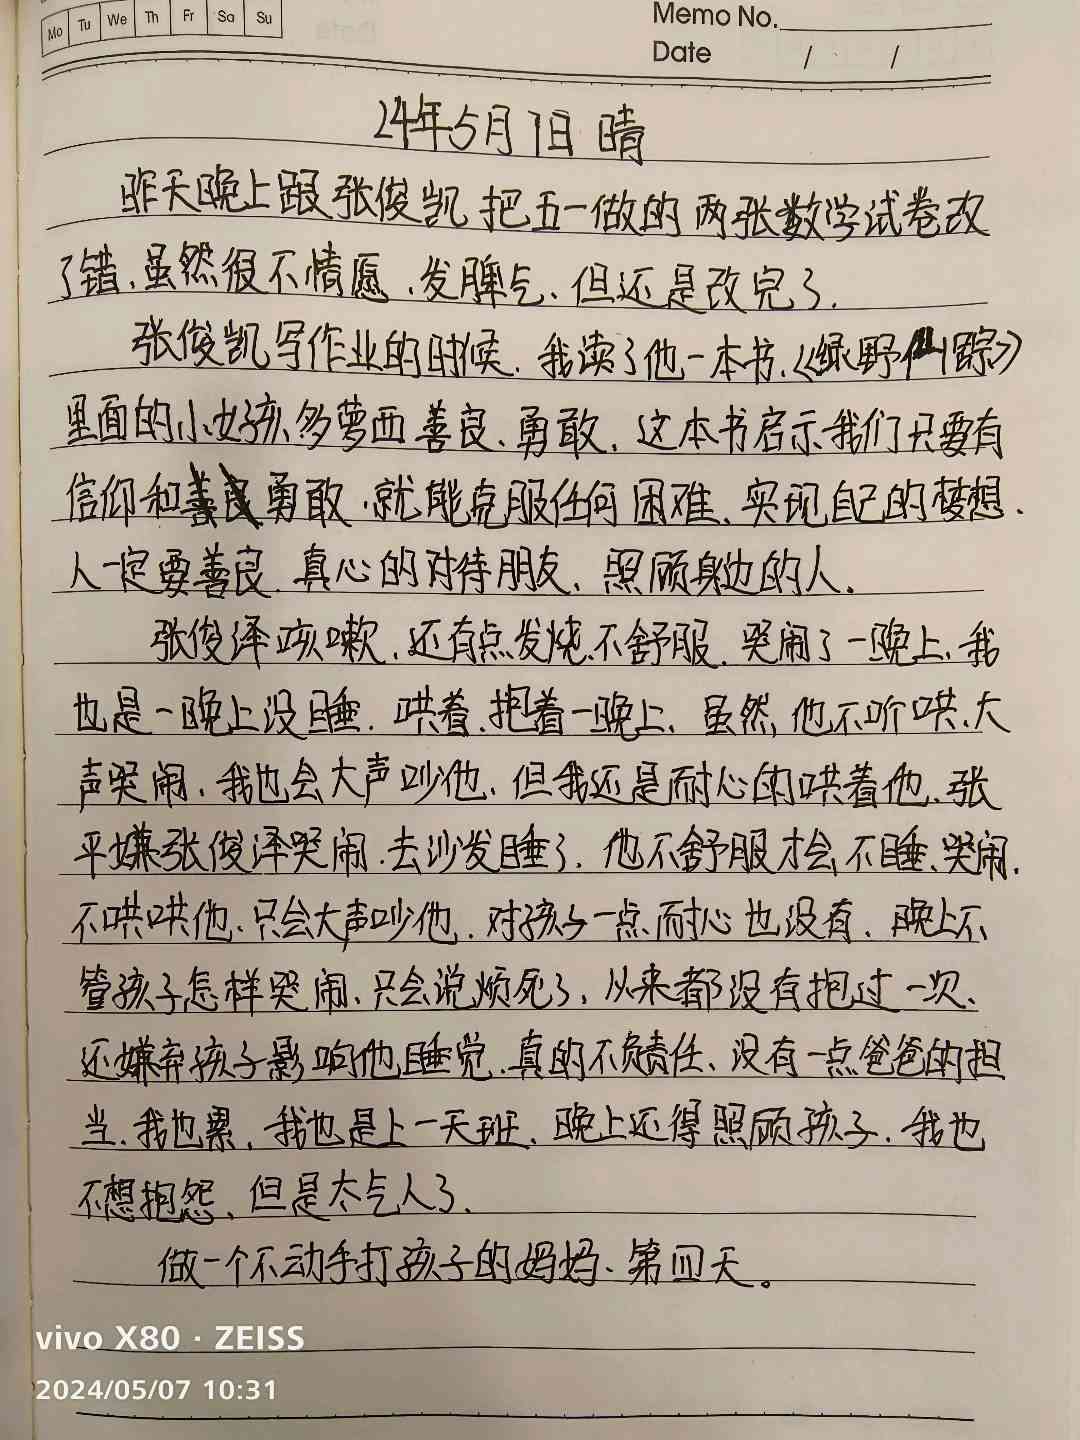 Mo Tu We Th Fr Sa Su
Memo No.
Date / /
24年5月7日 晴
昨天晚上跟张俊凯把五一做的两张数学试卷改
了错,虽然很不情愿,发脾气、但还是改完了.
张俊凯写作业的时候.我读了他一本书.《绿野仙踪》
里面的小女孩、多萝西善良、勇敢.这本书启示我们只要有
信仰和勇敢.就能克服任何困难、实现自己的梦想.
人一定要善良.真心的对待朋友、照顾身边的人.
张俊泽咳嗽.还有点发烧.不舒服.哭闹了一晚上.我
也是一晚上没睡.哄着.抱着一晚上、虽然,他不听哄、大
声哭闹.我也会大声吵他.但我还是耐心的哄着他.张
平嫌张俊泽哭闹.去沙发睡了.他不舒服才会不睡、哭闹.
不哄哄他、只会大声吵他.对孩子一点耐心也没有.晚上不
管孩子怎样哭闹、只会说烦死了,从来都没有抱过一次、
还嫌弃孩子影响他睡觉.真的不负责任、没有一点爸爸的担
当.我也累.我也是上一天班.晚上还得照顾孩子.我也
不想抱怨、但是太气人了.
做一个不动手打孩子的妈妈、第四天。
vivo X80 · ZEISS
2024/05/07 10:31